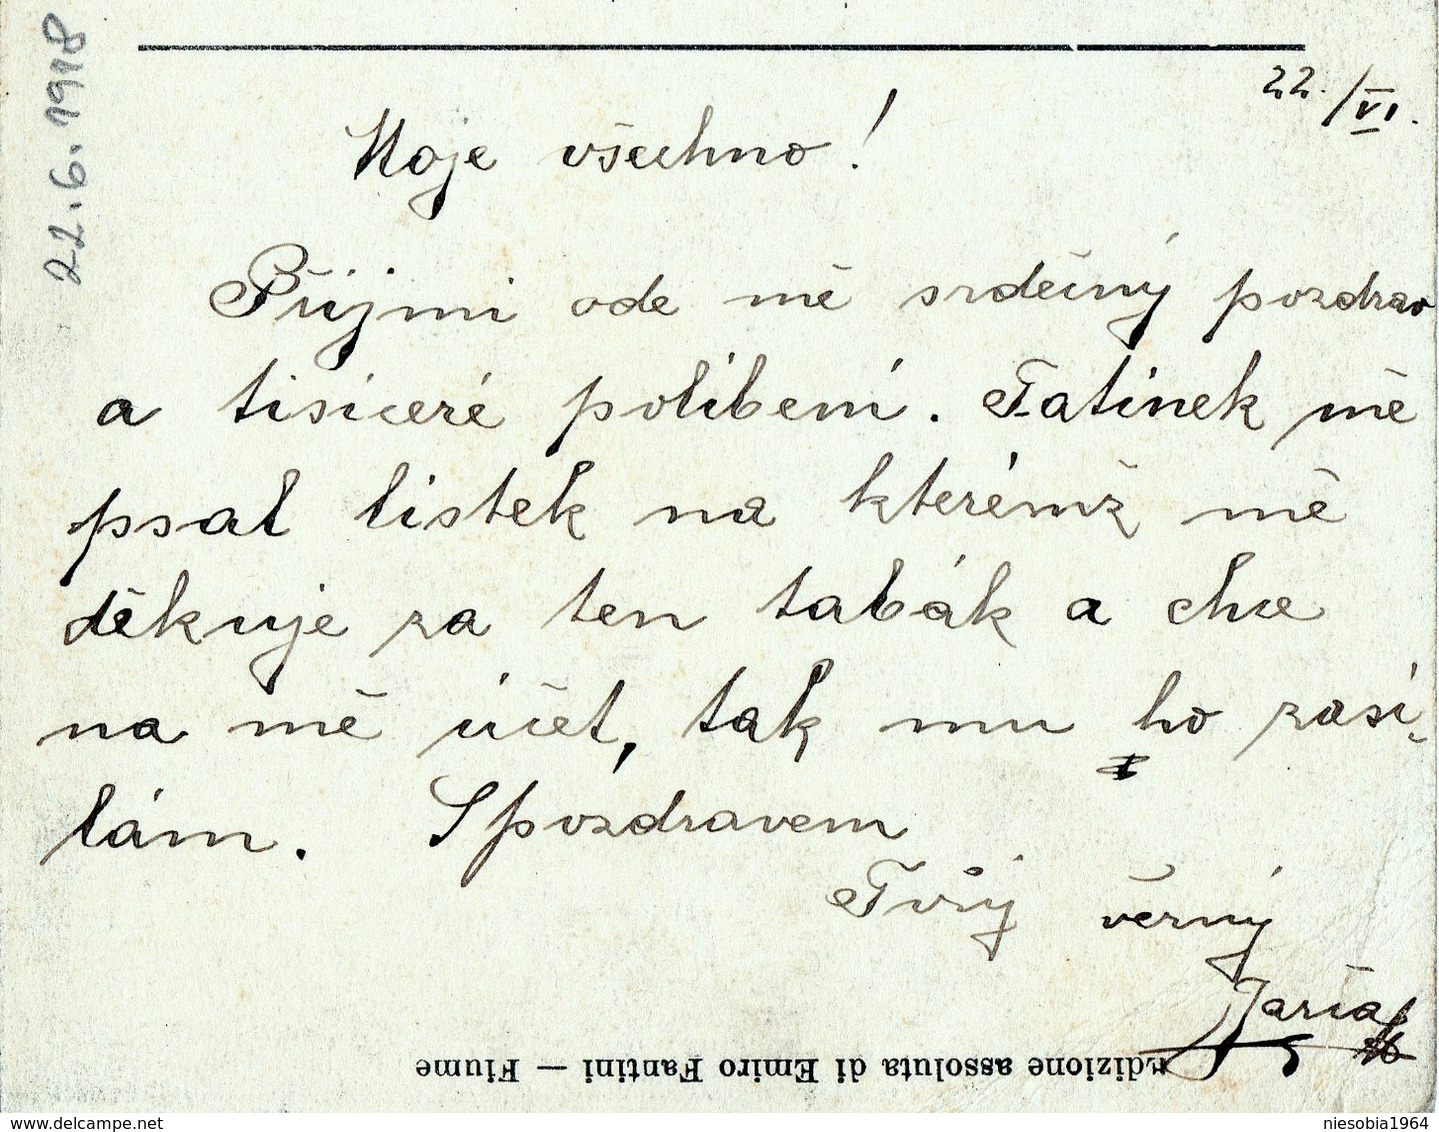 22.6.1918
22./VI.
Moje všechno!
Přijmi ode mě srdečný pozdrav
a tisiceré polibení. Tatínek mě
psal lístek na kterémž mě
děkuje za ten tabák a chce
na mě účet, tak mu ho zasí-
lám. S pozdravem
Tvůj věrný
Jarča
Edizione assoluta di Emiro Fantini — Fiume
www.delcampe.net
niesobia1964